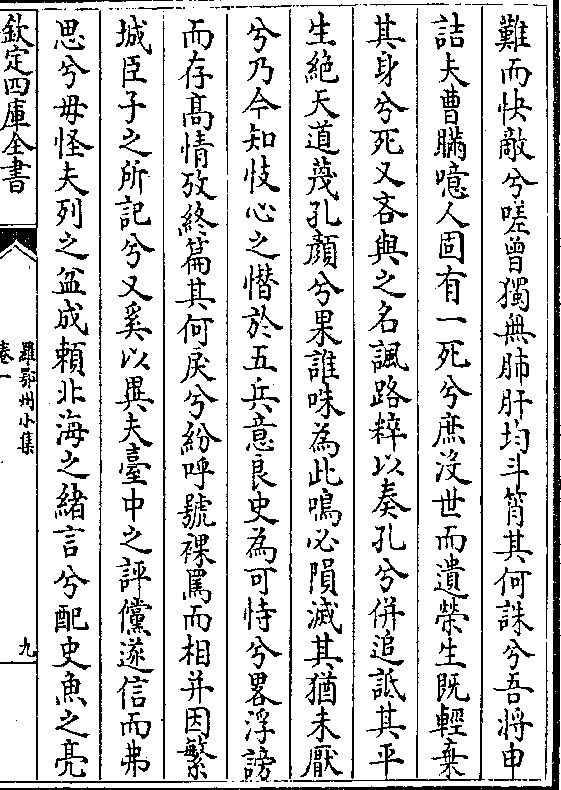 難而快敵兮嗟曾獨無肺肝均斗筲其何誅兮吾將申
詰夫曹瞞噫人固有一死兮庶沒世而遺榮生既輕棄
其身兮死又吝與之名諷路粹以奏孔兮併追詆其平
生絶天道蔑孔顔兮果誰咮為此鳴必隕滅其猶未厭
兮乃今知忮心之憯於五兵意良史為可恃兮畧浮謗
而存髙情攷終篇其何戾兮紛呼號裸罵而相并因繁
城臣子之所記兮又奚以異夫臺中之評儻遂信而弗
思兮毋怪夫列之盆成頼北海之緒言兮配史魚之亮
欽定四庫全書
羅鄂州小集
卷一
九